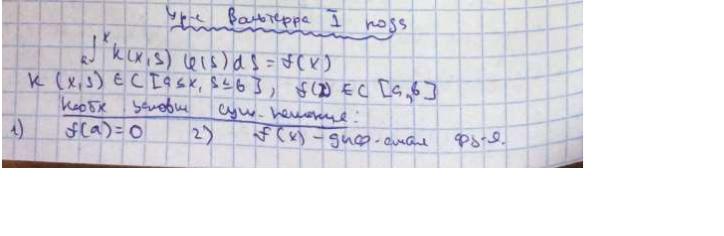 Ур-е Вольтерра I рода
a∫^x K(x,s) φ(s) ds = f(x)
K(x,s) ∈ C [a≤x, s≤b], f(x) ∈ C [a,b]
Необх условия сущ. решения:
1) f(a)=0 2) f(x) - диф-емая фу-я.